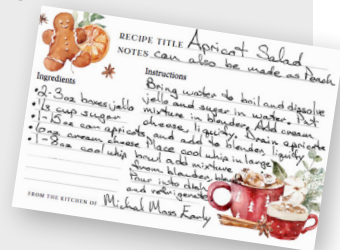 RECIPE TITLE Apricot Salad
NOTES can also be made as Peach
Ingredients
• 2-3oz boxes jello
• 1/2 cup sugar
• 1-15oz can apricots
• 6oz cream cheese
• 1-8oz cool whip
Instructions
Bring water to boil and dissolve
jello and sugar in water. Put
mixture in blender. Add cream
cheese, liquify. Drain apricots
and add to blender, liquify.
Place cool whip in large
bowl add mixture
from blender, blend
Pour into dish
and refrigerate
FROM THE KITCHEN OF Michal Moss Early